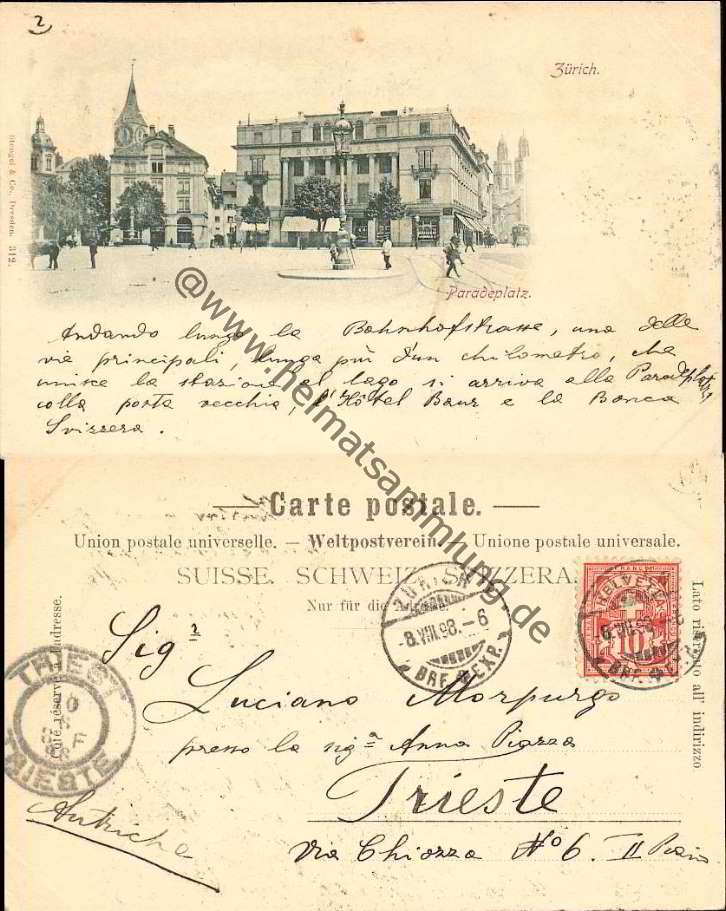 2
Zürich.
HÔTEL BAUR
Stengel & Co., Dresden. 312.
Paradeplatz.
Andando lungo la Bahnhofstrasse, una delle
vie principali, lunga più d'un chilometro, che
unisce la stazione al lago si arriva alla Paradeplatz,
colla posta vecchia, l'Hôtel Baur e la Banca
Svizzera.
@www.heimatsammlung.de
Carte postale.
Union postale universelle. — Weltpostverein. — Unione postale universale.
SUISSE. SCHWEIZ. SVIZZERA.
Nur für die Adresse.
Côté réservé à l'adresse.
Lato riservato all' indirizzo
ZÜRICH
-8.VIII.98.-6
BRF. EXP.
HELVETIA
10
TRIEST
TRIESTE
Sig.a
Luciano Morpurgo
presso la sig.a Anna Piazza
Trieste
Via Chiozza No 6. II Piano
Autricha